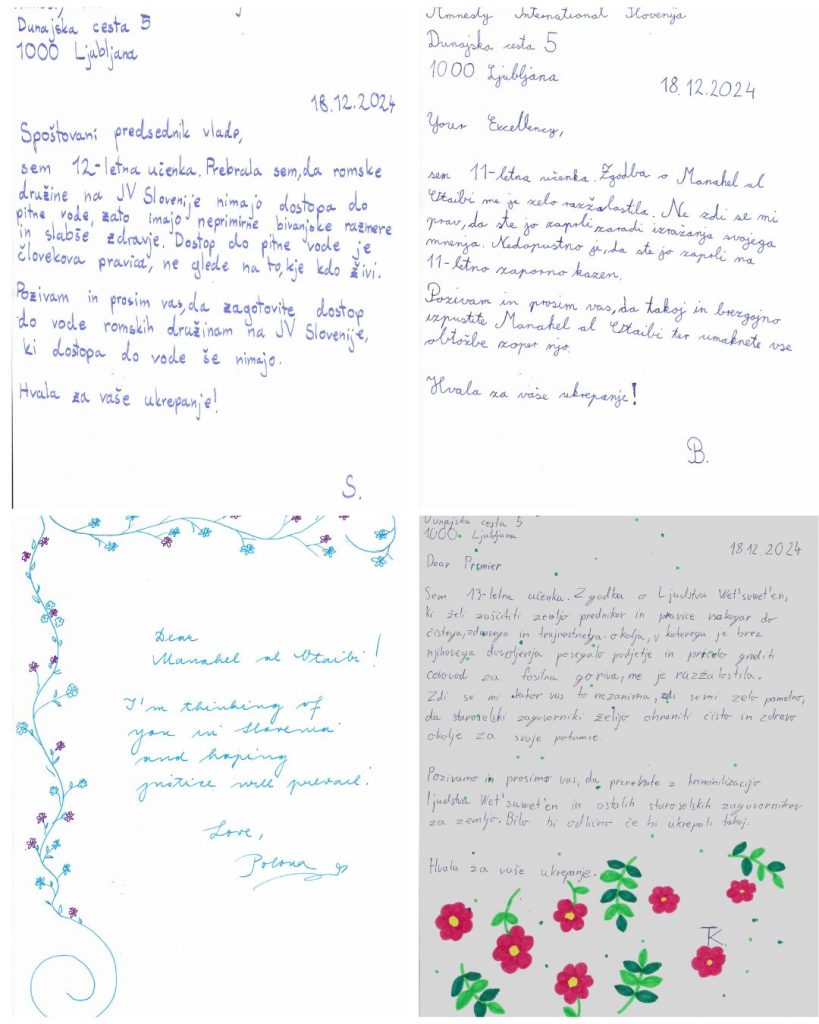 Dunajska cesta 5
1000 Ljubljana
18.12.2024
Spoštovani predsednik vlade,
sem 12-letna učenka. Prebrala sem, da romske
družine na JV Slovenije nimajo dostopa do
pitne vode, zato imajo neprimirne bivanjske razmere
in slabše zdravje. Dostop do pitne vode je
človekova pravica, ne glede na to, kje kdo živi.
Pozivam in prosim vas, da zagotovite dostop
do vode romskih družinam na JV Slovenije,
ki dostopa do vode še nimajo.
Hvala za vaše ukrepanje!
S.
Amnesty International Slovenija
Dunajska cesta 5
1000 Ljubljana
18.12.2024
Your Excellency,
sem 11-letna učenka. Zgodba o Manahel al
Utaibi me je zelo razžalostila. Ne zdi se mi
prav, da ste jo zaprli zaradi izražanja svojega
mnenja. Nedopustno je, da ste jo zaprli na
11-letno zaporno kazen.
Pozivam in prosim vas, da takoj in brezgojno
izpustite Manahel al Utaibi ter umaknete vse
obtožbe zoper njo.
Hvala za vaše ukrepanje!
B.
Dear
Manahel al Utaibi!
I'm thinking of
you in Slovenia
and hoping
justice will prevail!
Love,
Polona
Dunajska cesta 5
1000 Ljubljana
18.12.2024
Dear Premier
Sem 13-letna učenka. Zgodba o Ljudstvu Wet'suwet'en,
ki želi zaščititi zemljo prednikov in pravice vsakogar do
čistega, zdravega in trajnostnega okolja, v katerega je brez
njihovega dovoljenja posegalo podjetje in pričelo graditi
cevovod za fosilna goriva, me je razžalostila.
Zdi se mi vas to nezanima, zdi se mi zelo pametno,
da staroselski zagovorniki želijo ohraniti čisto in zdravo
okolje za svoje potomce.
Pozivamo in prosimo vas, da prenehate z kriminilizacijo
ljudstva Wet'suwet'en in ostalih staroselskih zagovornikov
za zemljo. Bilo bi odlično če bi ukrepali takoj.
Hvala za vaše ukrepanje.
K.